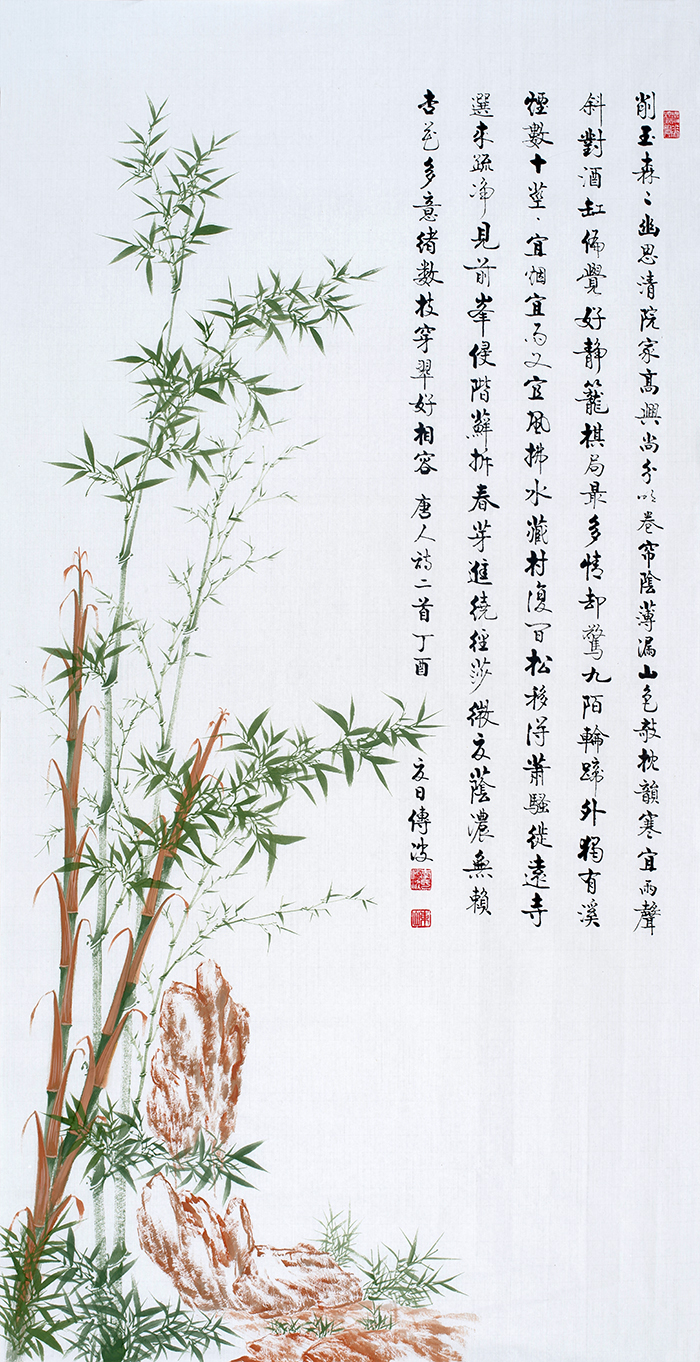 削玉森〻幽思清院家高興尚分明卷帘陰薄漏山色敧枕韻寒宜雨聲
斜對酒缸偏覺好静籠棋局最多情却驚九陌輪蹄外獨有溪
煙數十莖、宜烟宜雨又宜風拂水藏村復間松移得蕭騷從遠寺
選来疏净見前峯侵階蘚拆春芽進繞徑莎微夏蔭濃無賴
杏花多意緒数枝穿翠好相容 唐人詩二首丁酉 夏日傳波